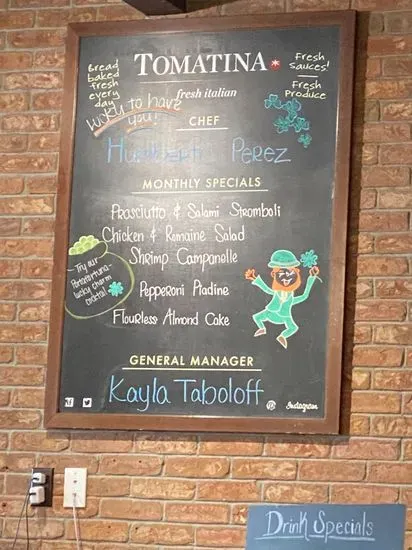 Bread
baked
fresh
every
day
TOMATINA
fresh italian
Fresh
Sauces!
Fresh
Produce
Lucky to have
you!
CHEF
Humberto Perez
MONTHLY SPECIALS
Prosciutto & Salami Stromboli
Chicken & Romaine Salad
Shrimp Campanelle
Pepperoni Piadine
Flourless Almond Cake
Try our
lucky charm
cocktail!
GENERAL MANAGER
Kayla Taboloff
Instagram
Drink Specials